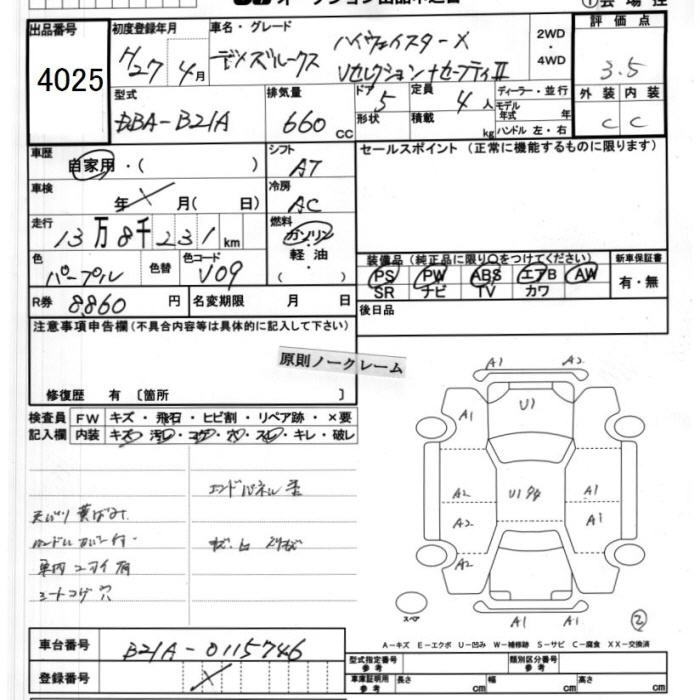 出品番号 4025
初度登録年月 H27年 4月
車名・グレード デイズルークス ハイウェイスターX
Vセレクション+セーフティII
2WD・4WD
評価点 3.5
外装 C 内装 C
型式 DBA-B21A
排気量 660 CC
ドア 5 形状
定員 4人 積載 kg
ディーラー・並行
モデル年式 年
ハンドル 左・右
車歴 自家用・( )
シフト AT
セールスポイント (正常に機能するものに限ります)
車検 年 月( 日)
冷房 AC
走行 13万8千231km
燃料 ガソリン 軽油・
色 パープル 色替 色コード V09
装備品 (純正品に限り○をつけてください) 新車保証書
PS PW ABS エアB AW 有・無
SR ナビ TV カワ
R券 8,860円 名変期限 月 日
後日品
注意事項申告欄 (不具合内容等は具体的に記入して下さい)
原則ノークレーム
修復歴 有 〔箇所 〕
検査員 FW キズ・飛石・ヒビ割・リペア跡・×要
記入欄 内装 キズ・汚レ・コゲ・穴・スレ・キレ・破レ
エンドパネル
天バリ 黄ばみ
ハンドルカバー付
シートコゲ穴
A1 A2
U1
A1
A2 A1
U1
A2 A1
A2
スペア
A1 A1
2
車台番号 B21A-0115746
登録番号
A−キズ E−エクボ U−凹み W−補修跡 S−サビ C−腐食 XX−交換済
型式指定番号 参考 類別区分番号 参考
車庫証明用 参考 長さ cm 幅 cm 高さ cm